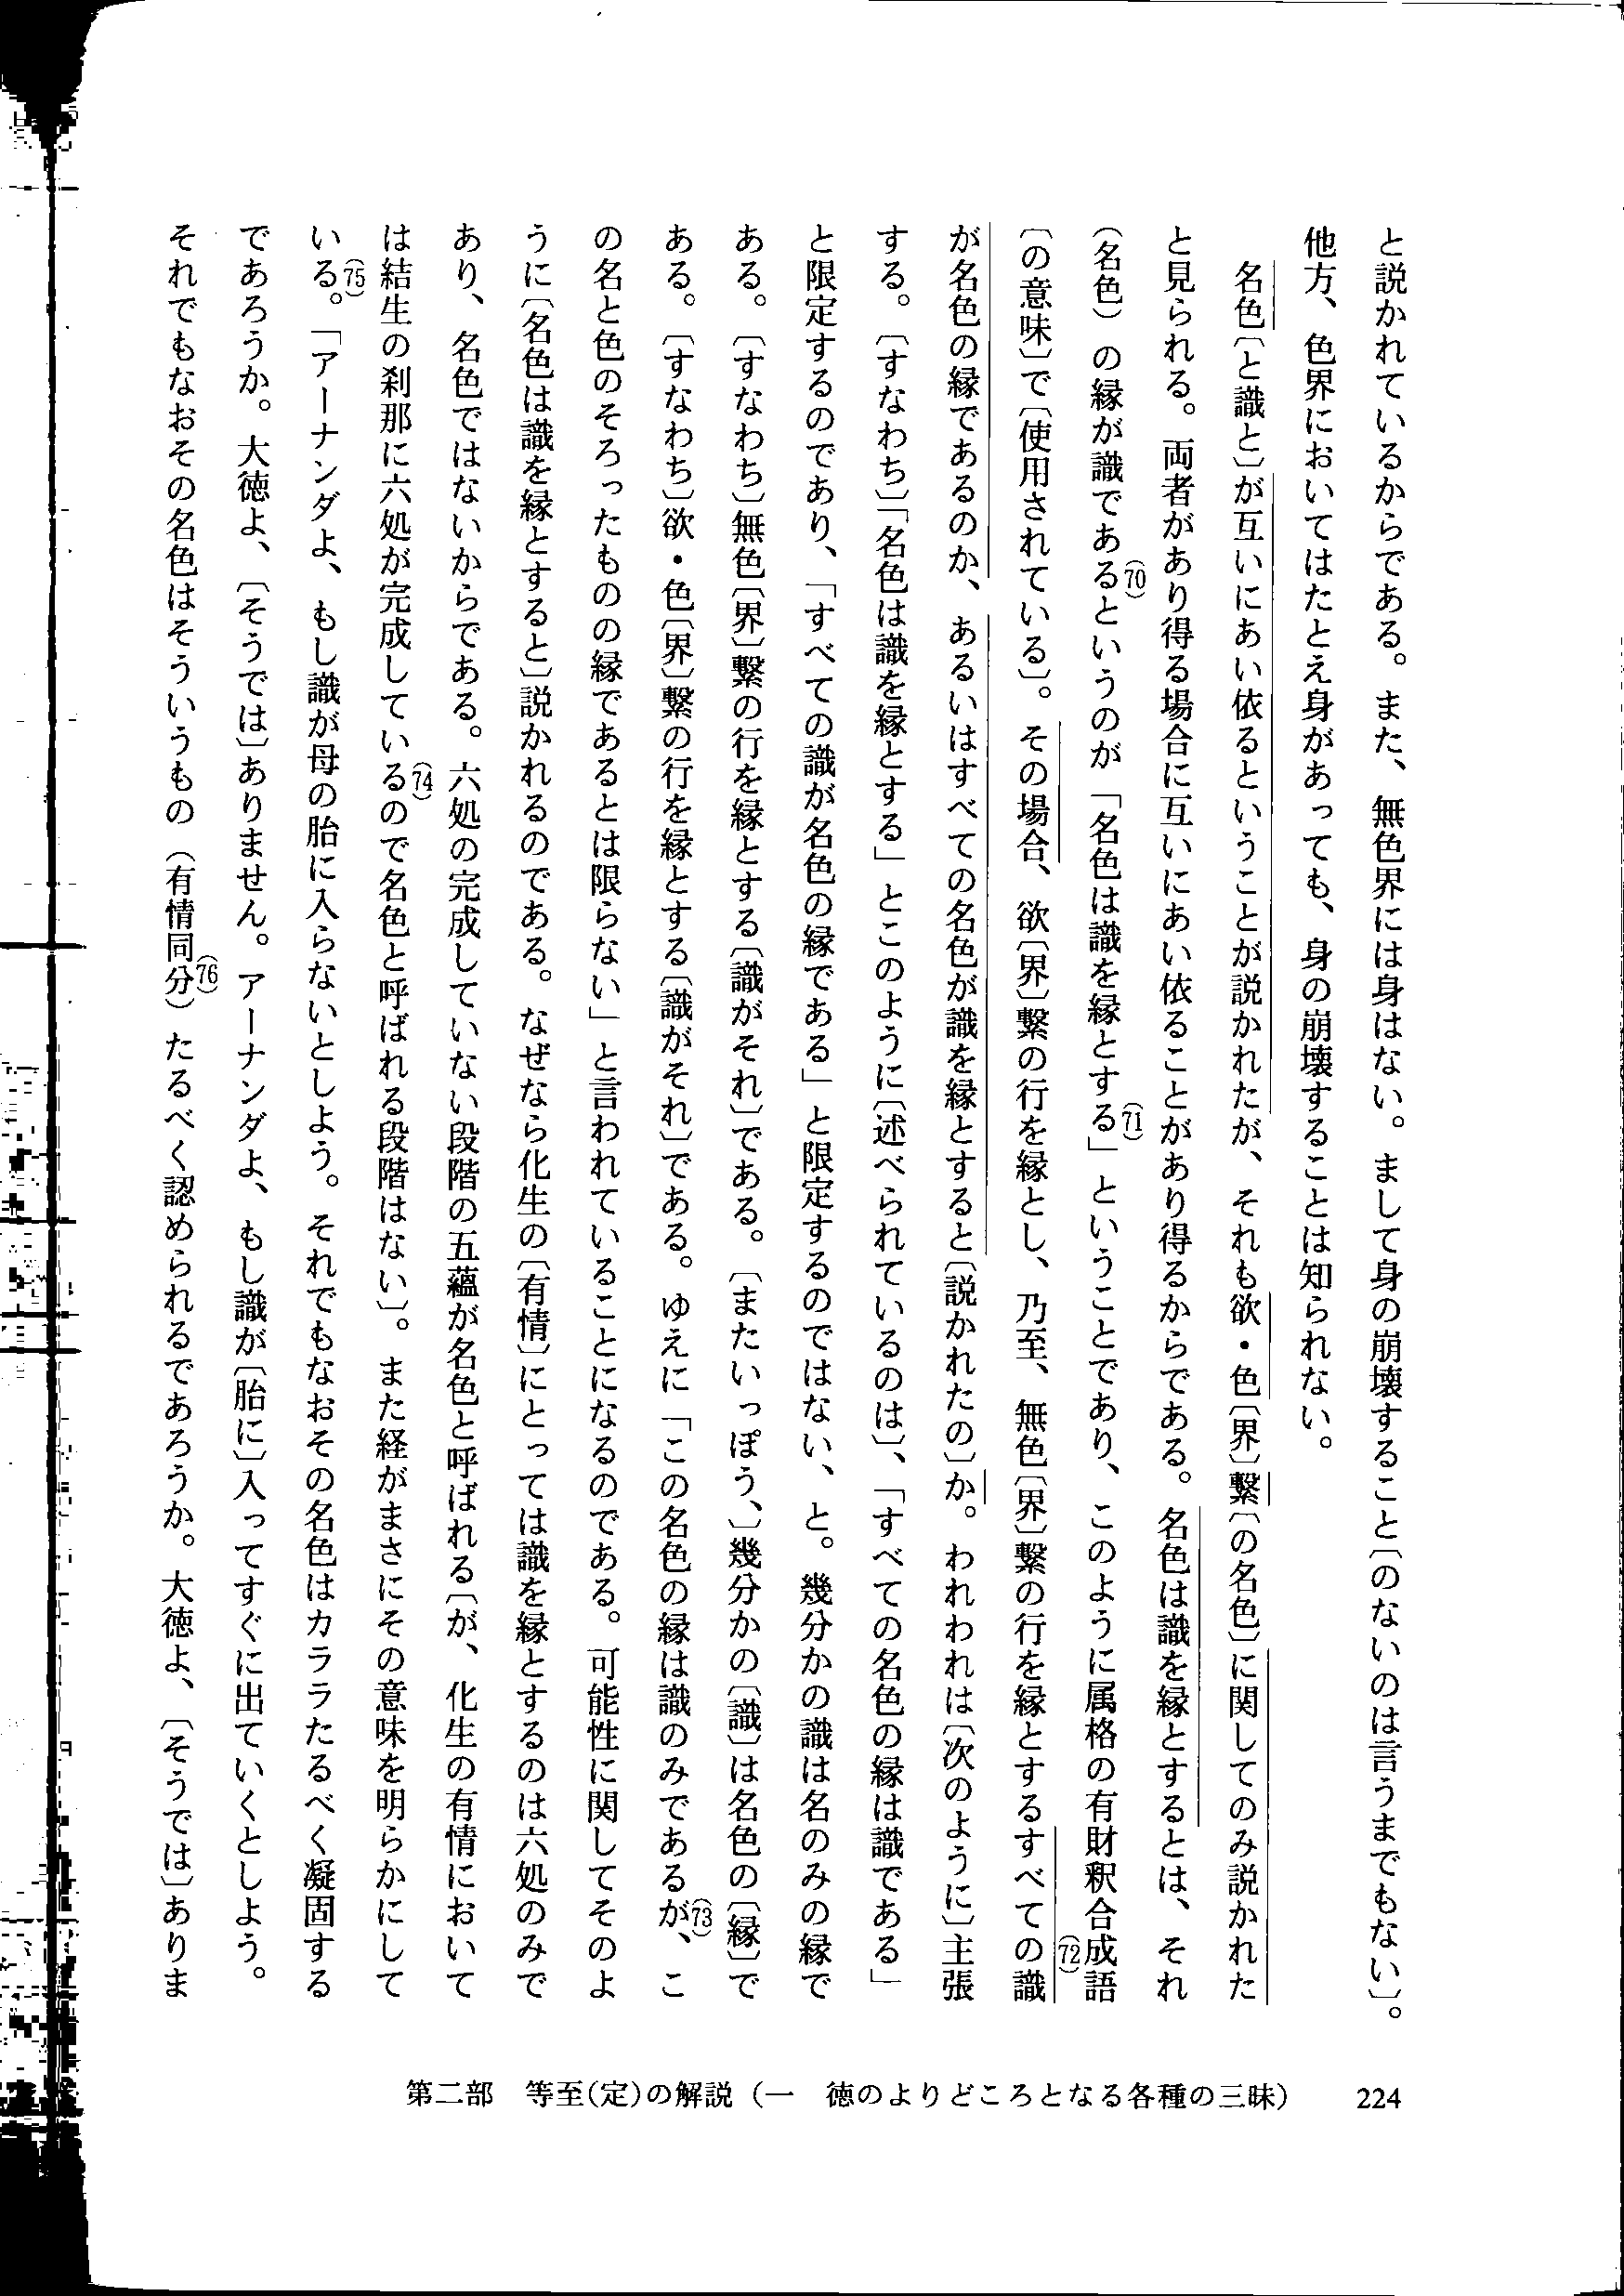 と説かれているからである。また、無色界には身はない。まして身の崩壊すること〔のないのは言うまでもない〕。
他方、色界においてはたとえ身があっても、身の崩壊することは知られない。
名色〔と識と〕が互いにあい依るということが説かれたが、それも欲・色〔界〕繫〔の名色〕に関してのみ説かれた
と見られる。両者があり得る場合に互いにあい依ることがあり得るからである。名色は識を縁とするとは、それ
(名色)の縁が識である(70)というのが「名色は識を縁とする(71)」ということであり、このように属格の有財釈合成語(72)
〔の意味〕で〔使用されている〕。その場合、欲〔界〕繫の行を縁とし、乃至、無色〔界〕繫の行を縁とするすべての識
が名色の縁であるのか、あるいはすべての名色が識を縁とすると〔説かれたの〕か。われわれは〔次のように〕主張
する。〔すなわち〕「名色は識を縁とする」とこのように〔述べられているのは〕、「すべての名色の縁は識である」
と限定するのであり、「すべての識が名色の縁である」と限定するのではない、と。幾分かの識は名のみの縁で
ある。〔すなわち〕無色〔界〕繫の行を縁とする〔識がそれ〕である。〔またいっぽう、〕幾分かの〔識〕は名色の〔縁〕で
ある。〔すなわち〕欲・色〔界〕繫の行を縁とする〔識がそれ〕である。ゆえに「この名色の縁は識のみであるが(73)、こ
の名と色のそろったものの縁であるとは限らない」と言われていることになるのである。可能性に関してそのよ
うに〔名色は識を縁とすると〕説かれるのである。なぜなら化生の〔有情〕にとっては識を縁とするのは六処のみで
あり、名色ではないからである。六処の完成していない段階の五蘊が名色と呼ばれる〔が、化生の有情において
は結生の刹那に六処が完成している(74)ので名色と呼ばれる段階はない〕。また経がまさにその意味を明らかにして
いる(75)。「アーナンダよ、もし識が母の胎に入らないとしよう。それでもなおその名色はカララたるべく凝固する
であろうか。大徳よ、〔そうでは〕ありません。アーナンダよ、もし識が〔胎に〕入ってすぐに出ていくとしよう。
それでもなおその名色はそういうもの(有情同分(76))たるべく認められるであろうか。大徳よ、〔そうでは〕ありま
第二部 等至(定)の解説(一 徳のよりどころとなる各種の三昧) 224